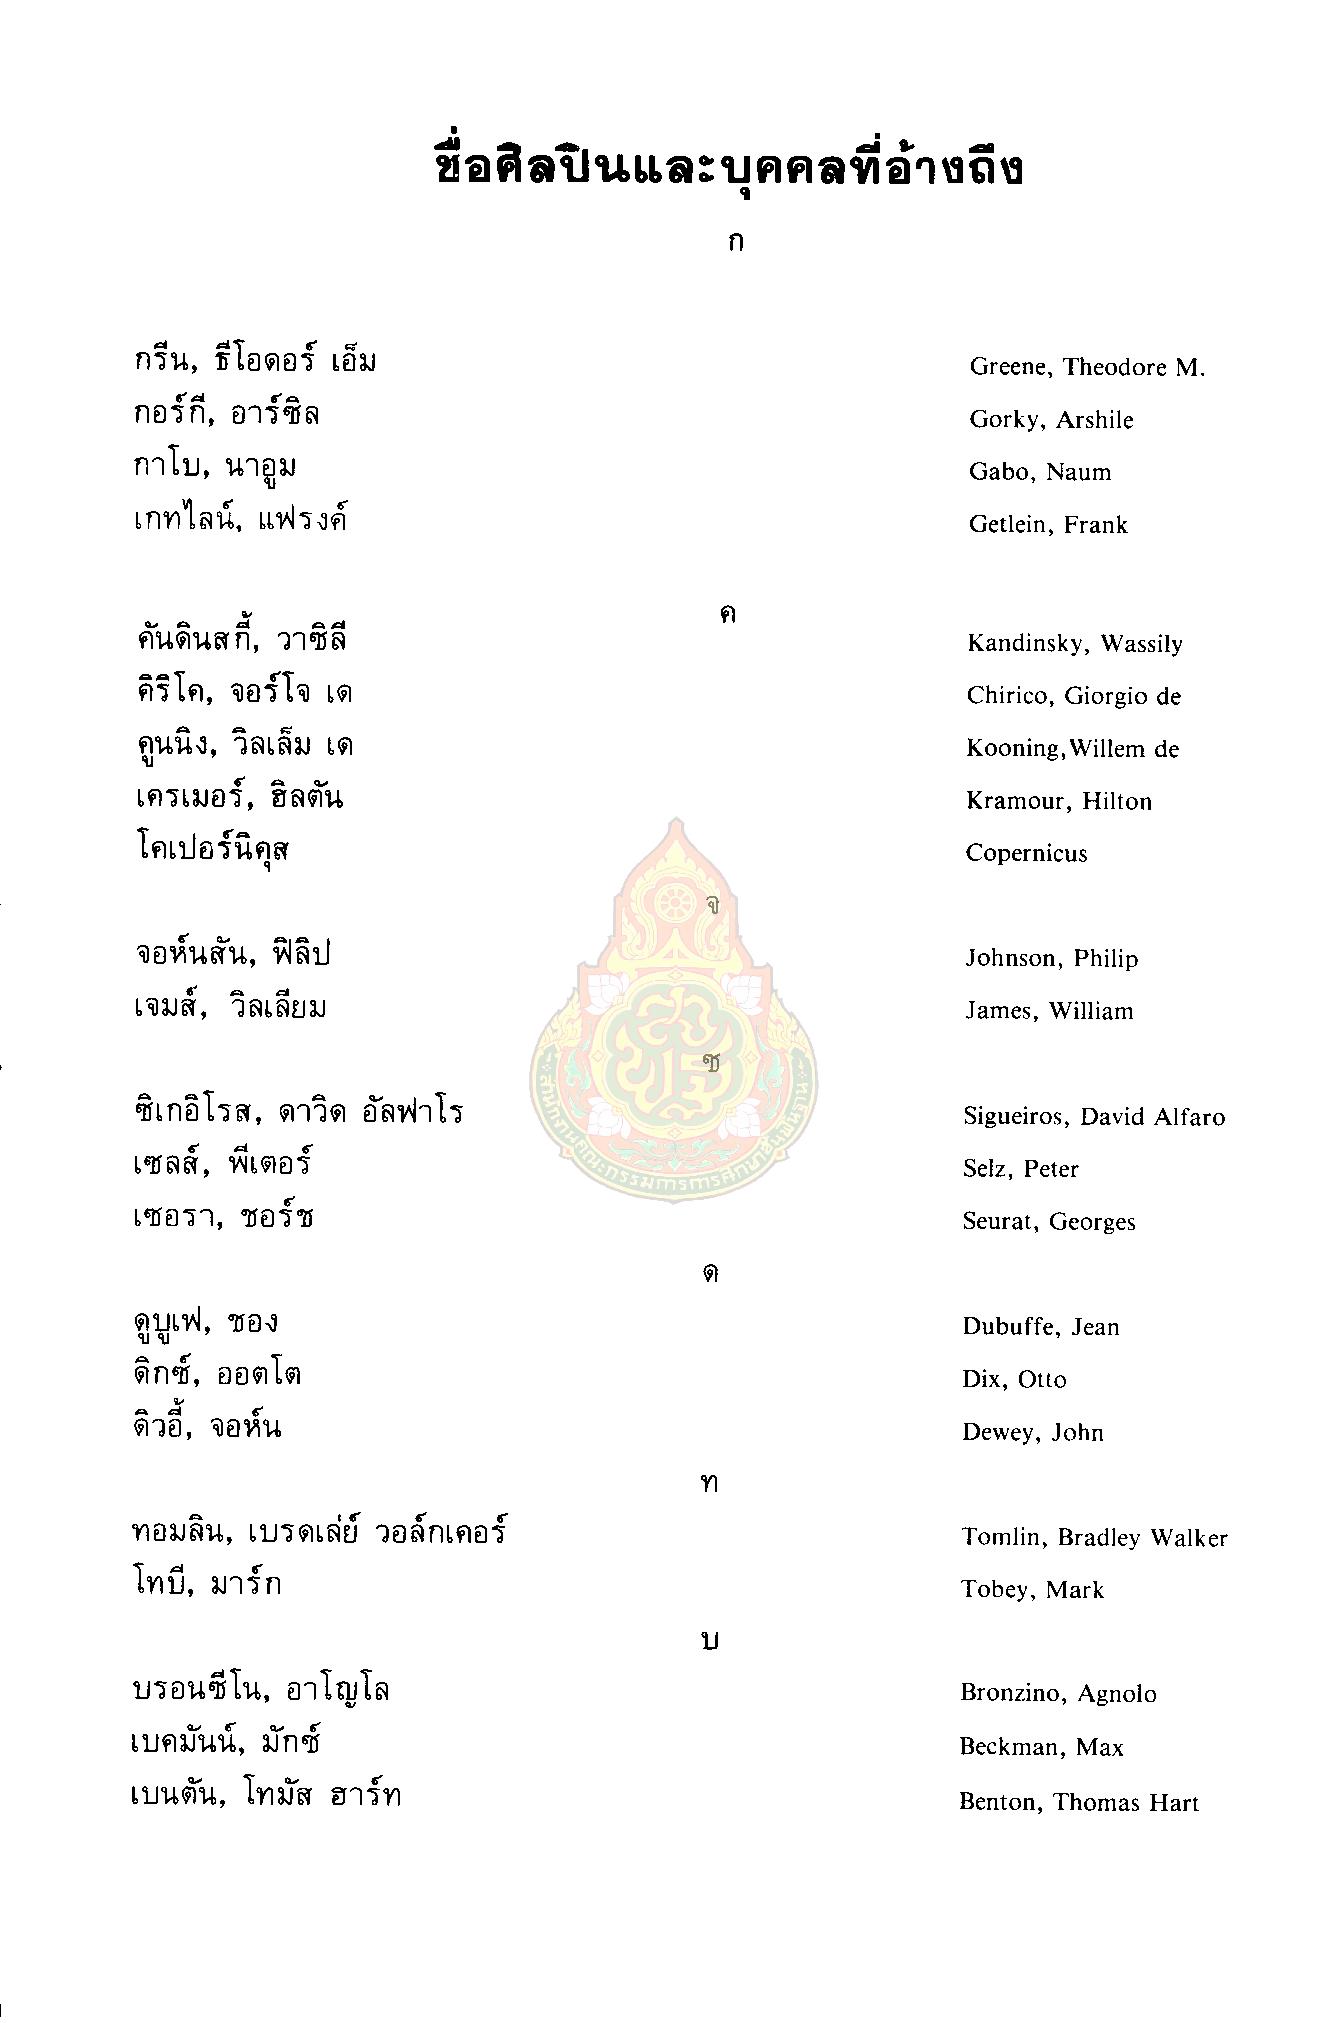 ชื่อศิลปินและบุคคลที่อ้างถึง
ก
กรีน, ธีโอดอร์ เอ็ม Greene, Theodore M.
กอร์กี, อาร์ซิล Gorky, Arshile
กาโบ, นาอูม Gabo, Naum
เกทไลน์, แฟรงค์ Getlein, Frank
ค
คันดินสกี้, วาซิลี Kandinsky, Wassily
คิริโค, จอร์โจ เด Chirico, Giorgio de
คูนนิง, วิลเล็ม เด Kooning,Willem de
เครเมอร์, ฮิลตัน Kramour, Hilton
โคเปอร์นิคุส Copernicus
จ
จอห์นสัน, ฟิลิป Johnson, Philip
เจมส์, วิลเลียม James, William
ซ
ซิเกอิโรส, ดาวิด อัลฟาโร Sigueiros, David Alfaro
เซลส์, พีเตอร์ Selz, Peter
เซอรา, ชอร์ช Seurat, Georges
ด
ดูบูเฟ, ชอง Dubuffe, Jean
ดิกซ์, ออตโต Dix, Otto
ดิวอี้, จอห์น Dewey, John
ท
ทอมลิน, เบรดเล่ย์ วอล์กเคอร์ Tomlin, Bradley Walker
โทบี, มาร์ก Tobey, Mark
บ
บรอนซีโน, อาโญโล Bronzino, Agnolo
เบคมันน์, มักซ์ Beckman, Max
เบนตัน, โทมัส ฮาร์ท Benton, Thomas Hart
สำนักงานคณะกรรมการการศึกษาขั้นพื้นฐาน